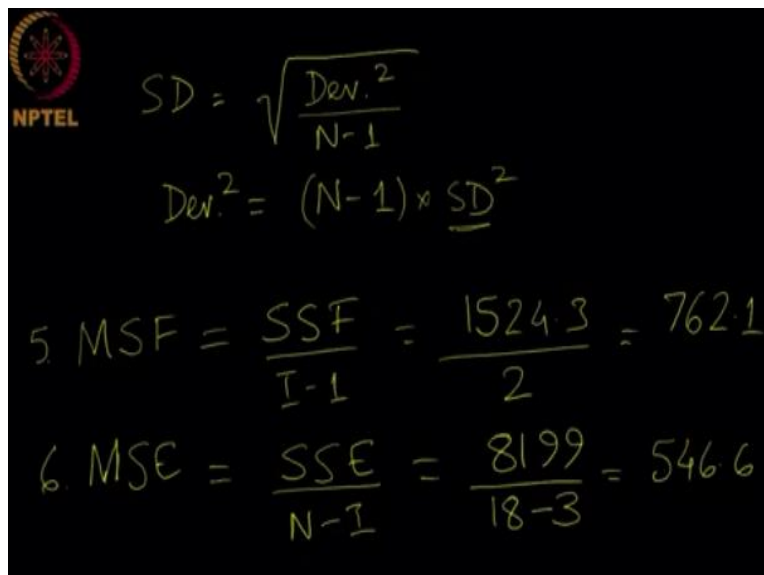 NPTEL
SD = √(Dev.² / N-1)
Dev.² = (N-1) × SD²
5. MSF = SSF / I-1 = 1524.3 / 2 = 762.1
6. MSE = SSE / N-I = 8199 / 18-3 = 546.6